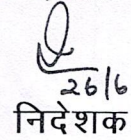 26/6
निदेशक